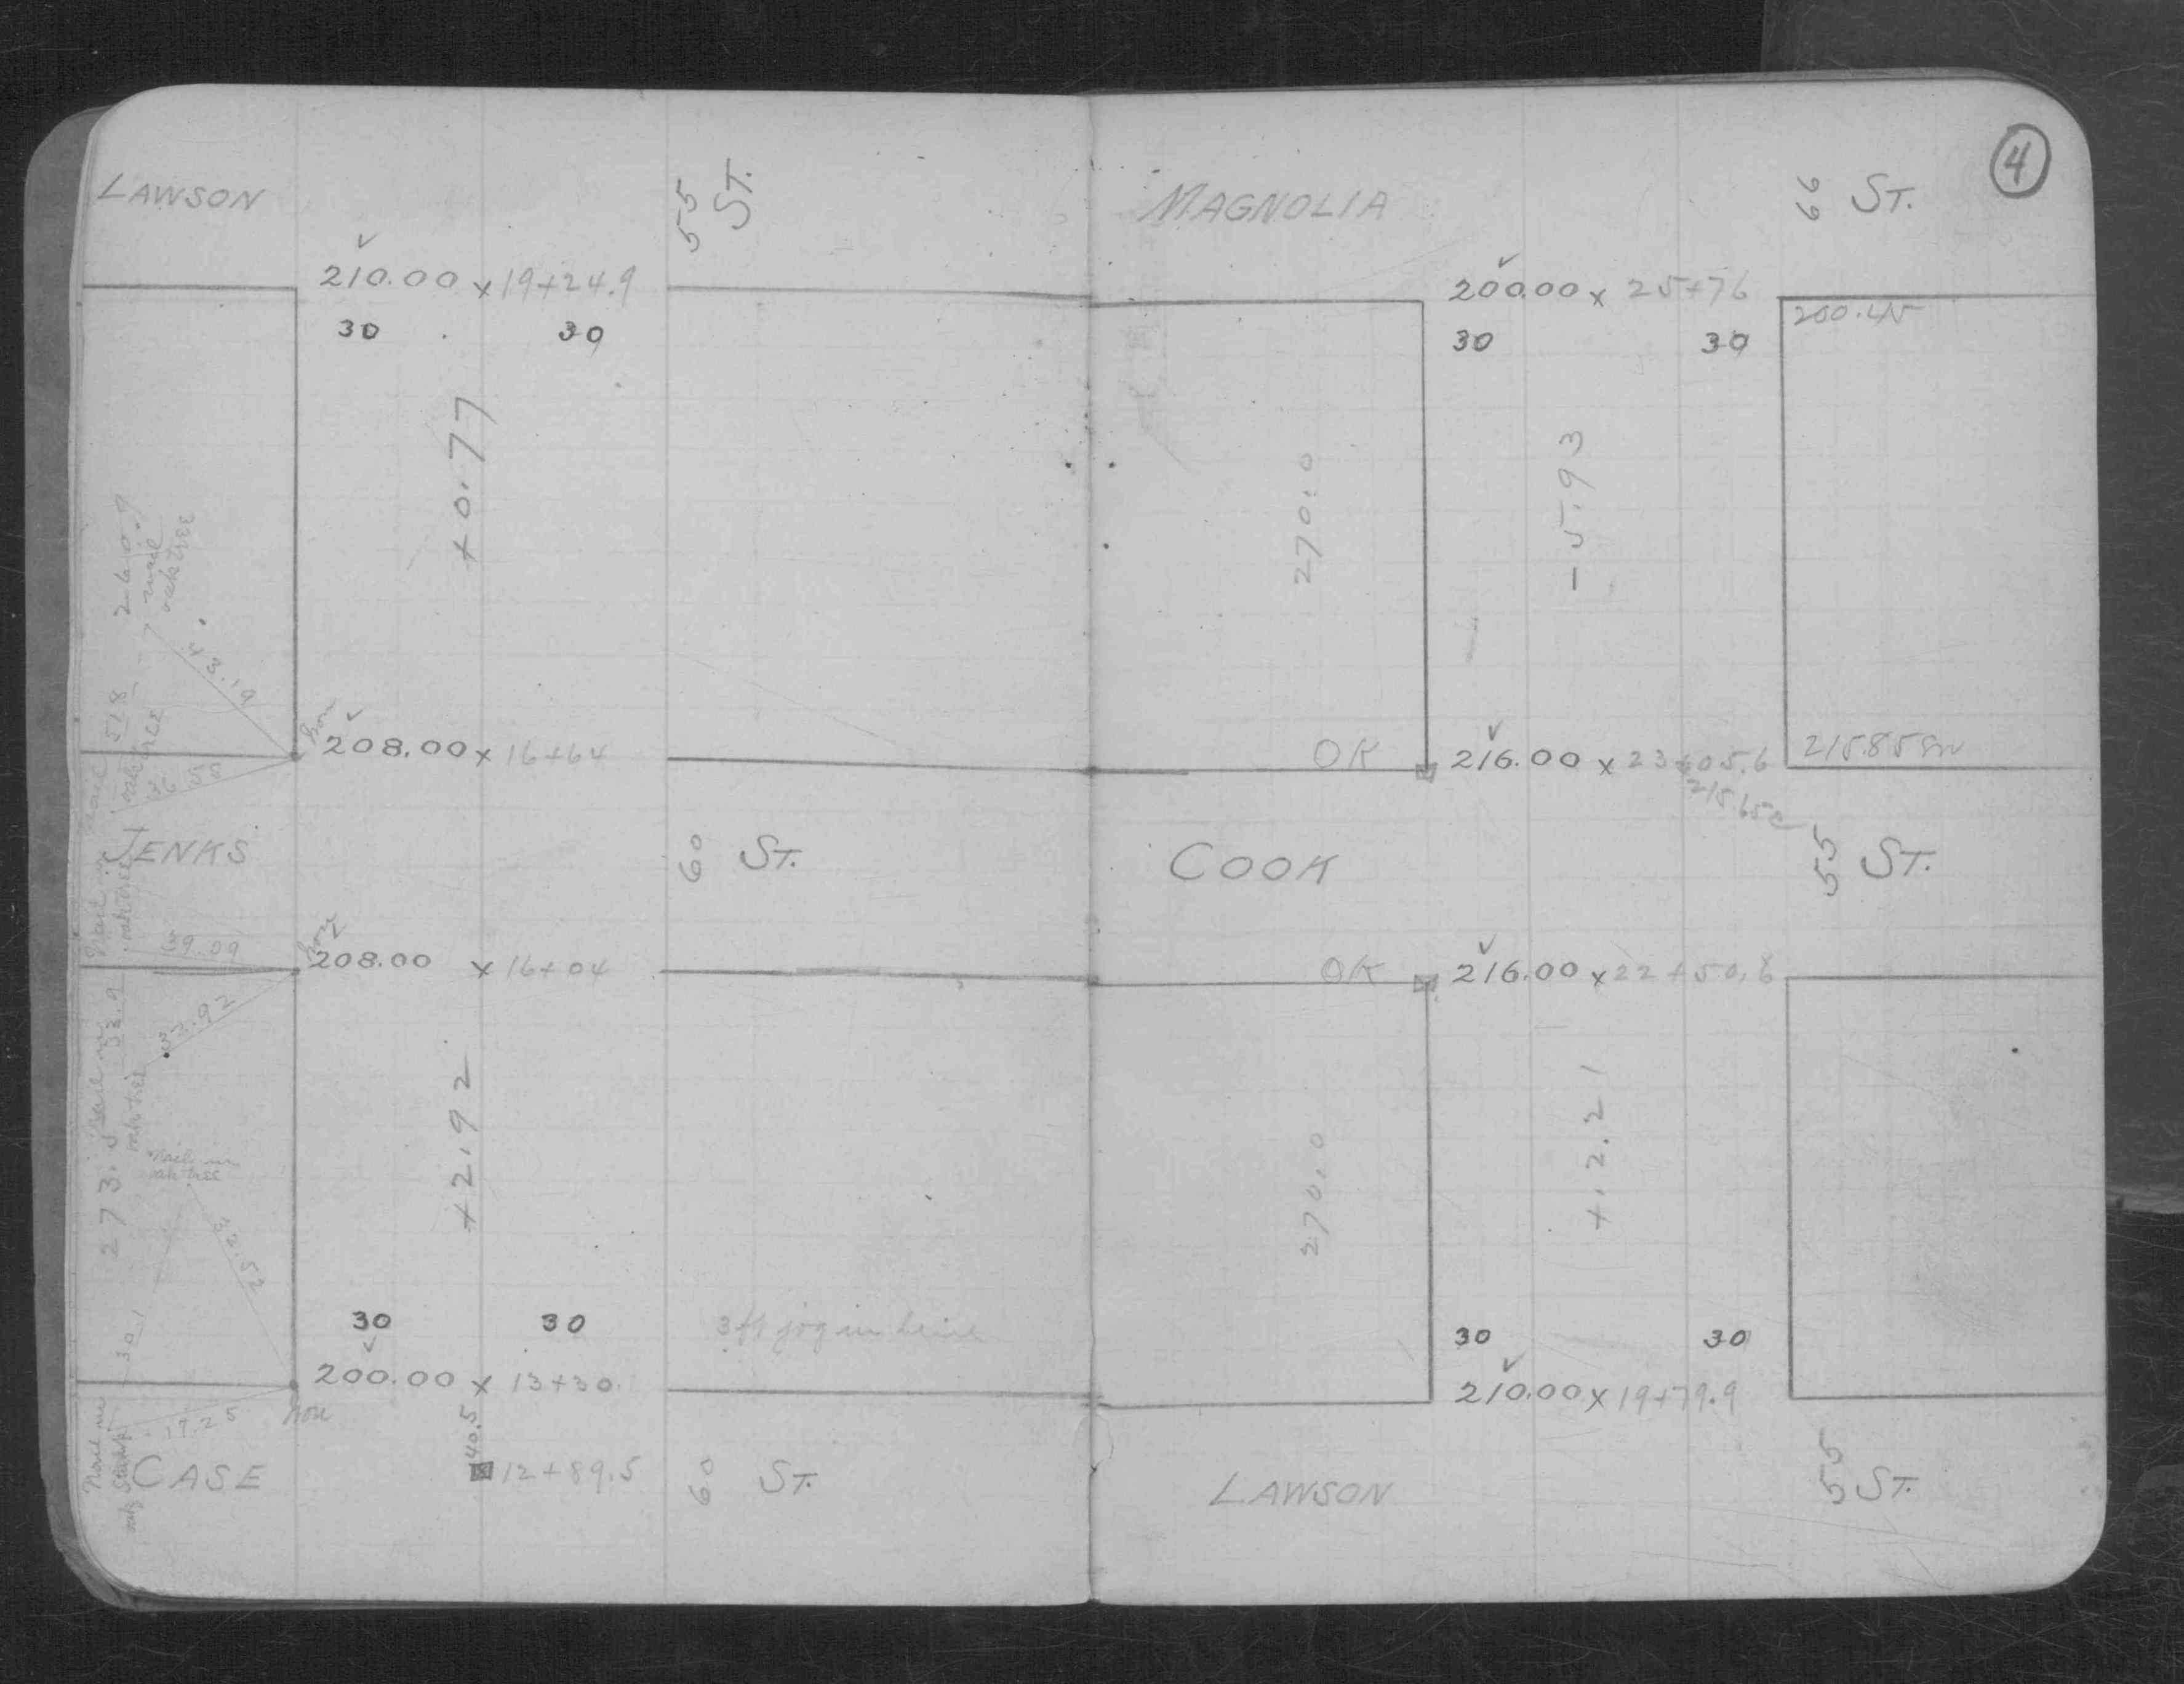 LAWSON
55 ST.
210.00 x 19+24.9
30 30
+0.77
260.9
nail
oak tree
518
208.00 x 16+64
JENKS
60 ST.
39.09
208.00 x 16+04
33.92
33.9
273.
oak tree
+2.92
Nail in
oak tree
25.23
30 30
3 ft jog in line
30.1
200.00 x 13+30.
17.25
40.5
Nail in
CASE
12+89.5
60 ST.
4
MAGNOLIA
66 ST.
200.00 x 25+76
30 30
270.0
-5.93
OK
216.00 x 23+05.6
215.85
215.65
COOK
55 ST.
OK
216.00 x 22+50.6
270.0
+2.21
30 30
210.00 x 19+79.9
LAWSON
55 ST.